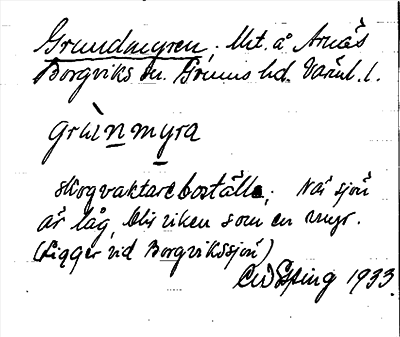 Grundmyren, Lht. å Arnäs
Borgviks sn. Grums hd. Värml. l.
grùnmyra
skogvaktareboställe; När sjön
är låg, blir viken som en myr.
(Ligger vid Borgvikssjön)
CWEsping 1933.